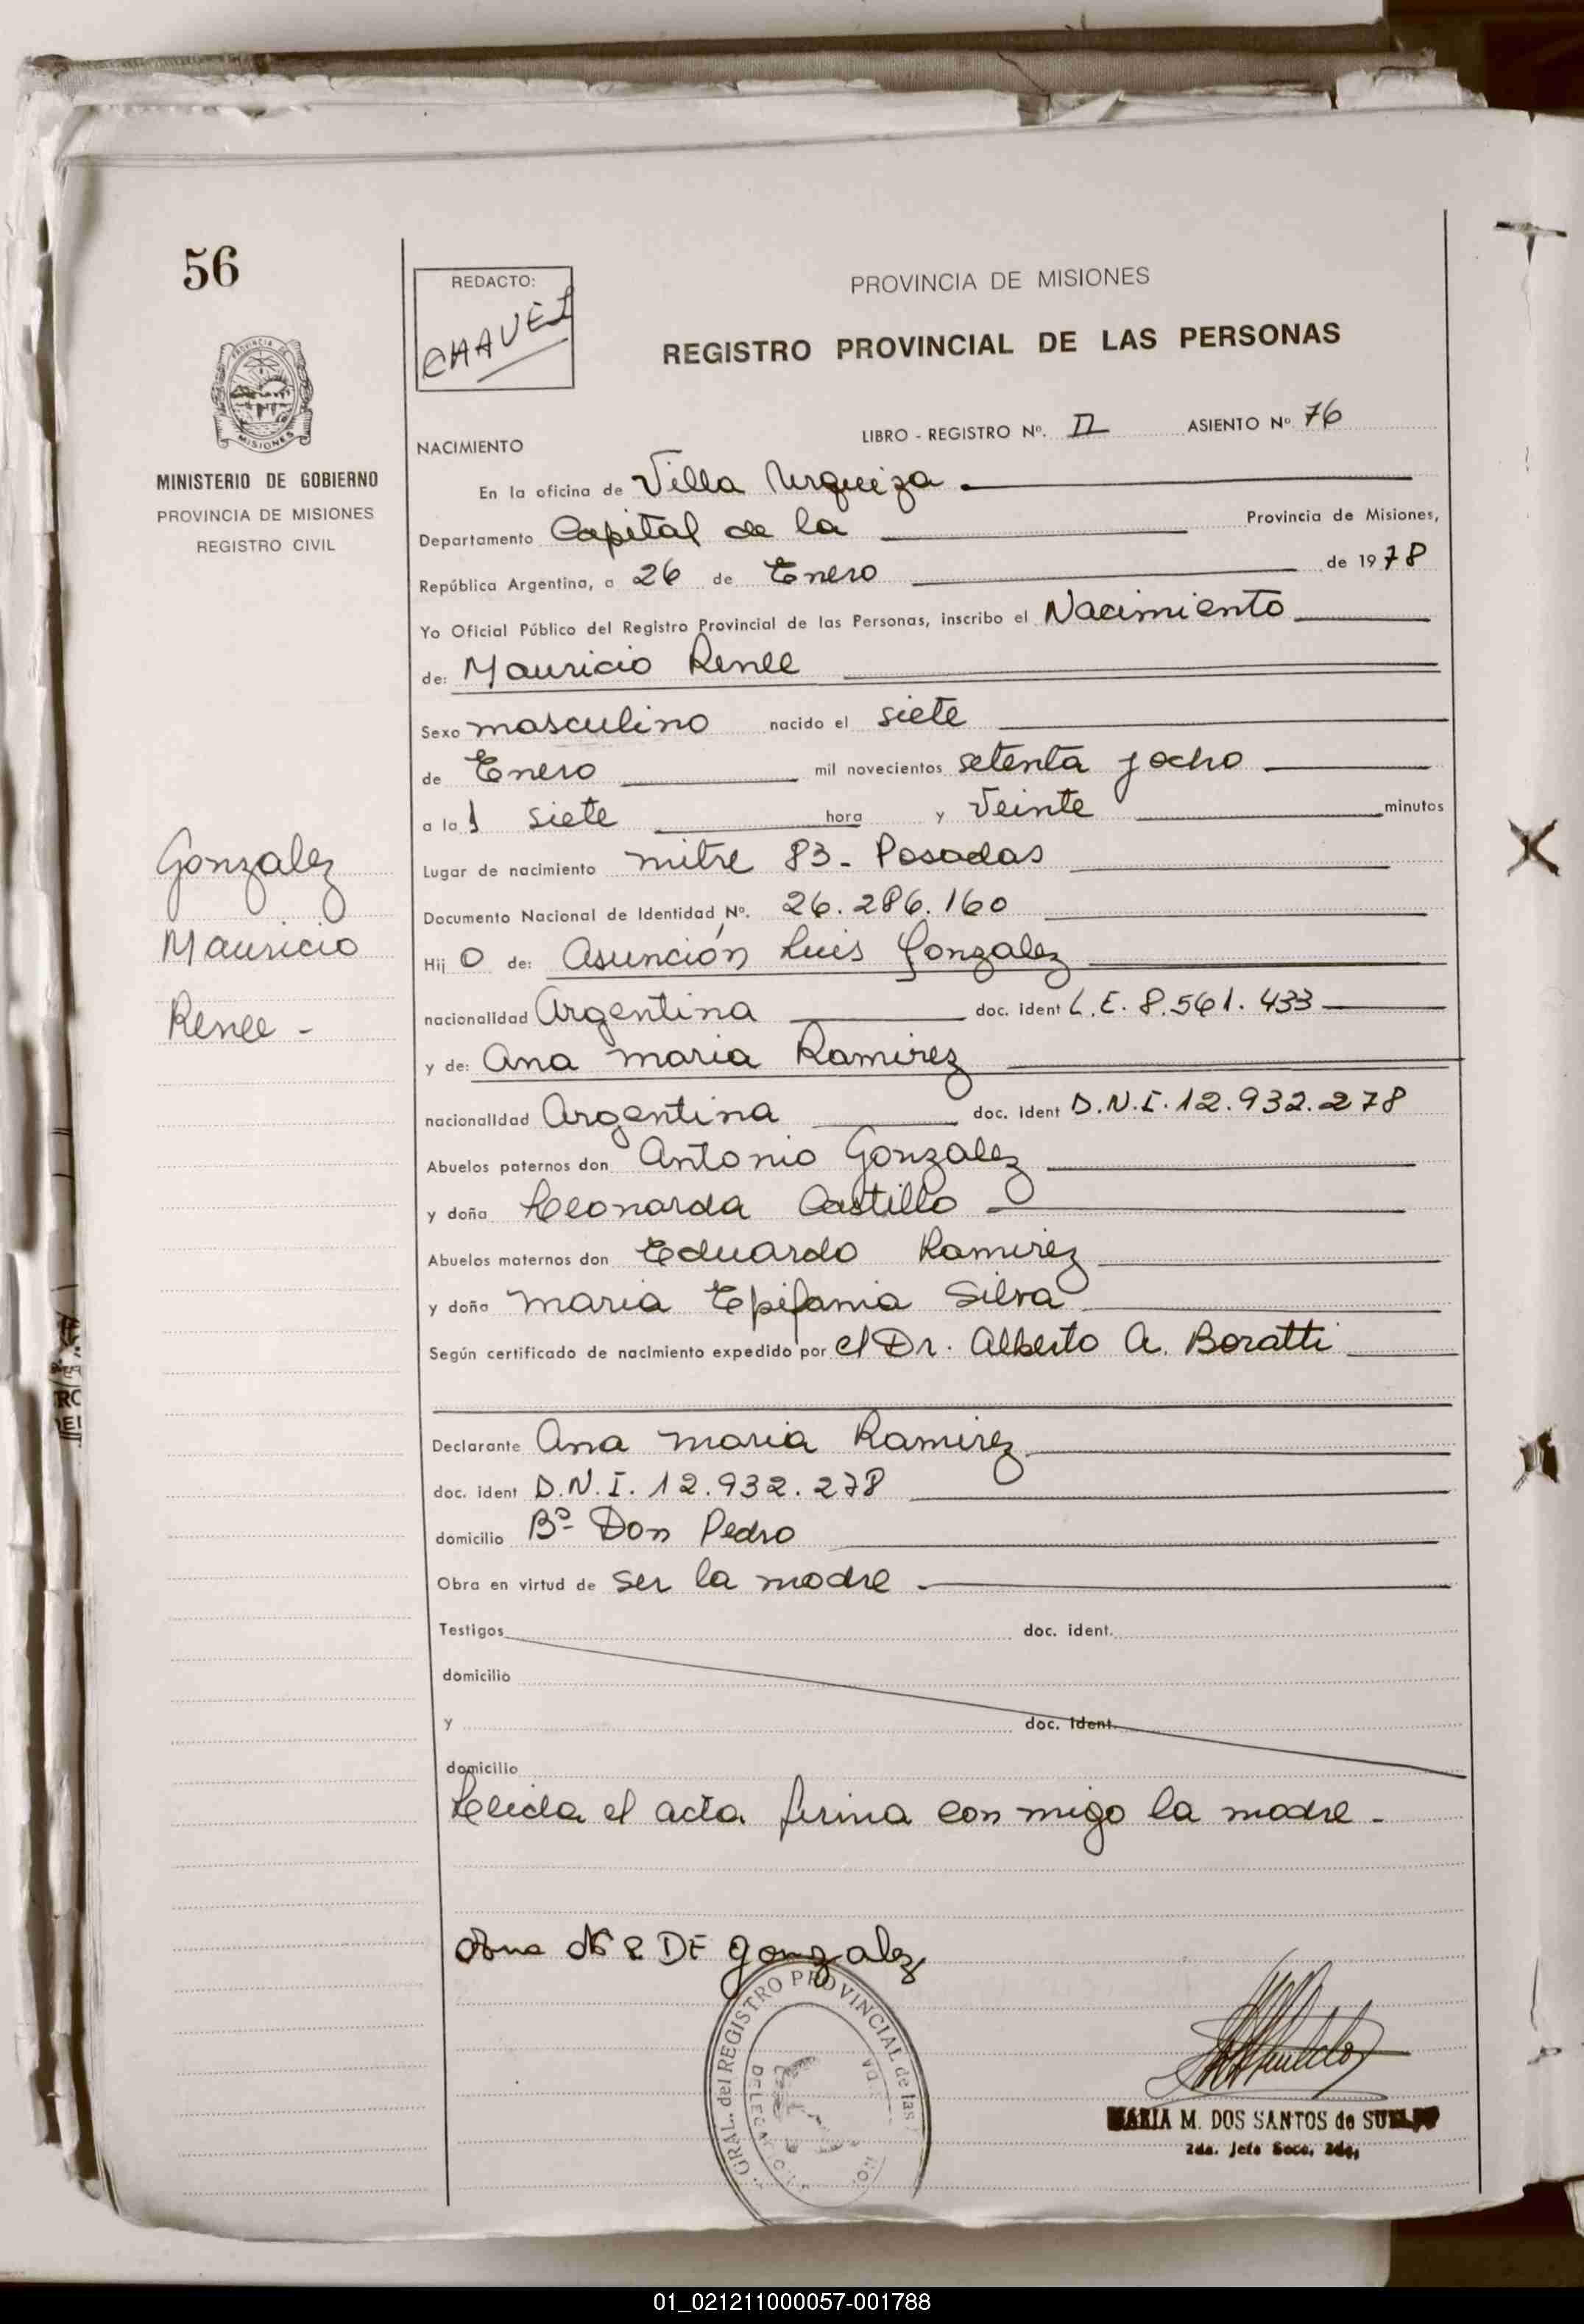 56
MINISTERIO DE GOBIERNO
PROVINCIA DE MISIONES
REGISTRO CIVIL
Gonzalez
Mauricio
Renee -
REDACTO:
CHAVEZ
PROVINCIA DE MISIONES
REGISTRO PROVINCIAL DE LAS PERSONAS
LIBRO - REGISTRO Nº. II ASIENTO Nº 76
NACIMIENTO
En la oficina de Villa Urquiza
Departamento Capital de la Provincia de Misiones,
República Argentina, a 26 de Enero de 1978
Yo Oficial Público del Registro Provincial de las Personas, inscribo el Nacimiento
de: Mauricio Renee
Sexo masculino nacido el siete
de Enero mil novecientos setenta y ocho
a la s siete hora y veinte minutos
Lugar de nacimiento mitre 83- Posadas
Documento Nacional de Identidad Nº. 26.286.160
Hij o de: Asunción Luis Gonzalez
nacionalidad Argentina doc. ident L.E. 8.561.433
y de: Ana maria Ramirez
nacionalidad Argentina doc. ident D.N.I. 12.932.278
Abuelos paternos don Antonio Gonzalez
y doña Leonarda Castillo
Abuelos maternos don Eduardo Ramirez
y doña maria Epifania Silva
Según certificado de nacimiento expedido por el Dr. Alberto A. Boratti
Declarante Ana maria Ramirez
doc. ident D.N.I. 12.932.278
domicilio Bº Don Pedro
Obra en virtud de ser la madre
Testigos doc. ident.
domicilio
y doc. ident.
domicilio
Leida el acta firma con migo la madre -
DE gonzalez
GRAL. del REGISTRO PROVINCIAL de las
MARIA M. DOS SANTOS de
2da. Jefe Secc.
01_021211000057-001788